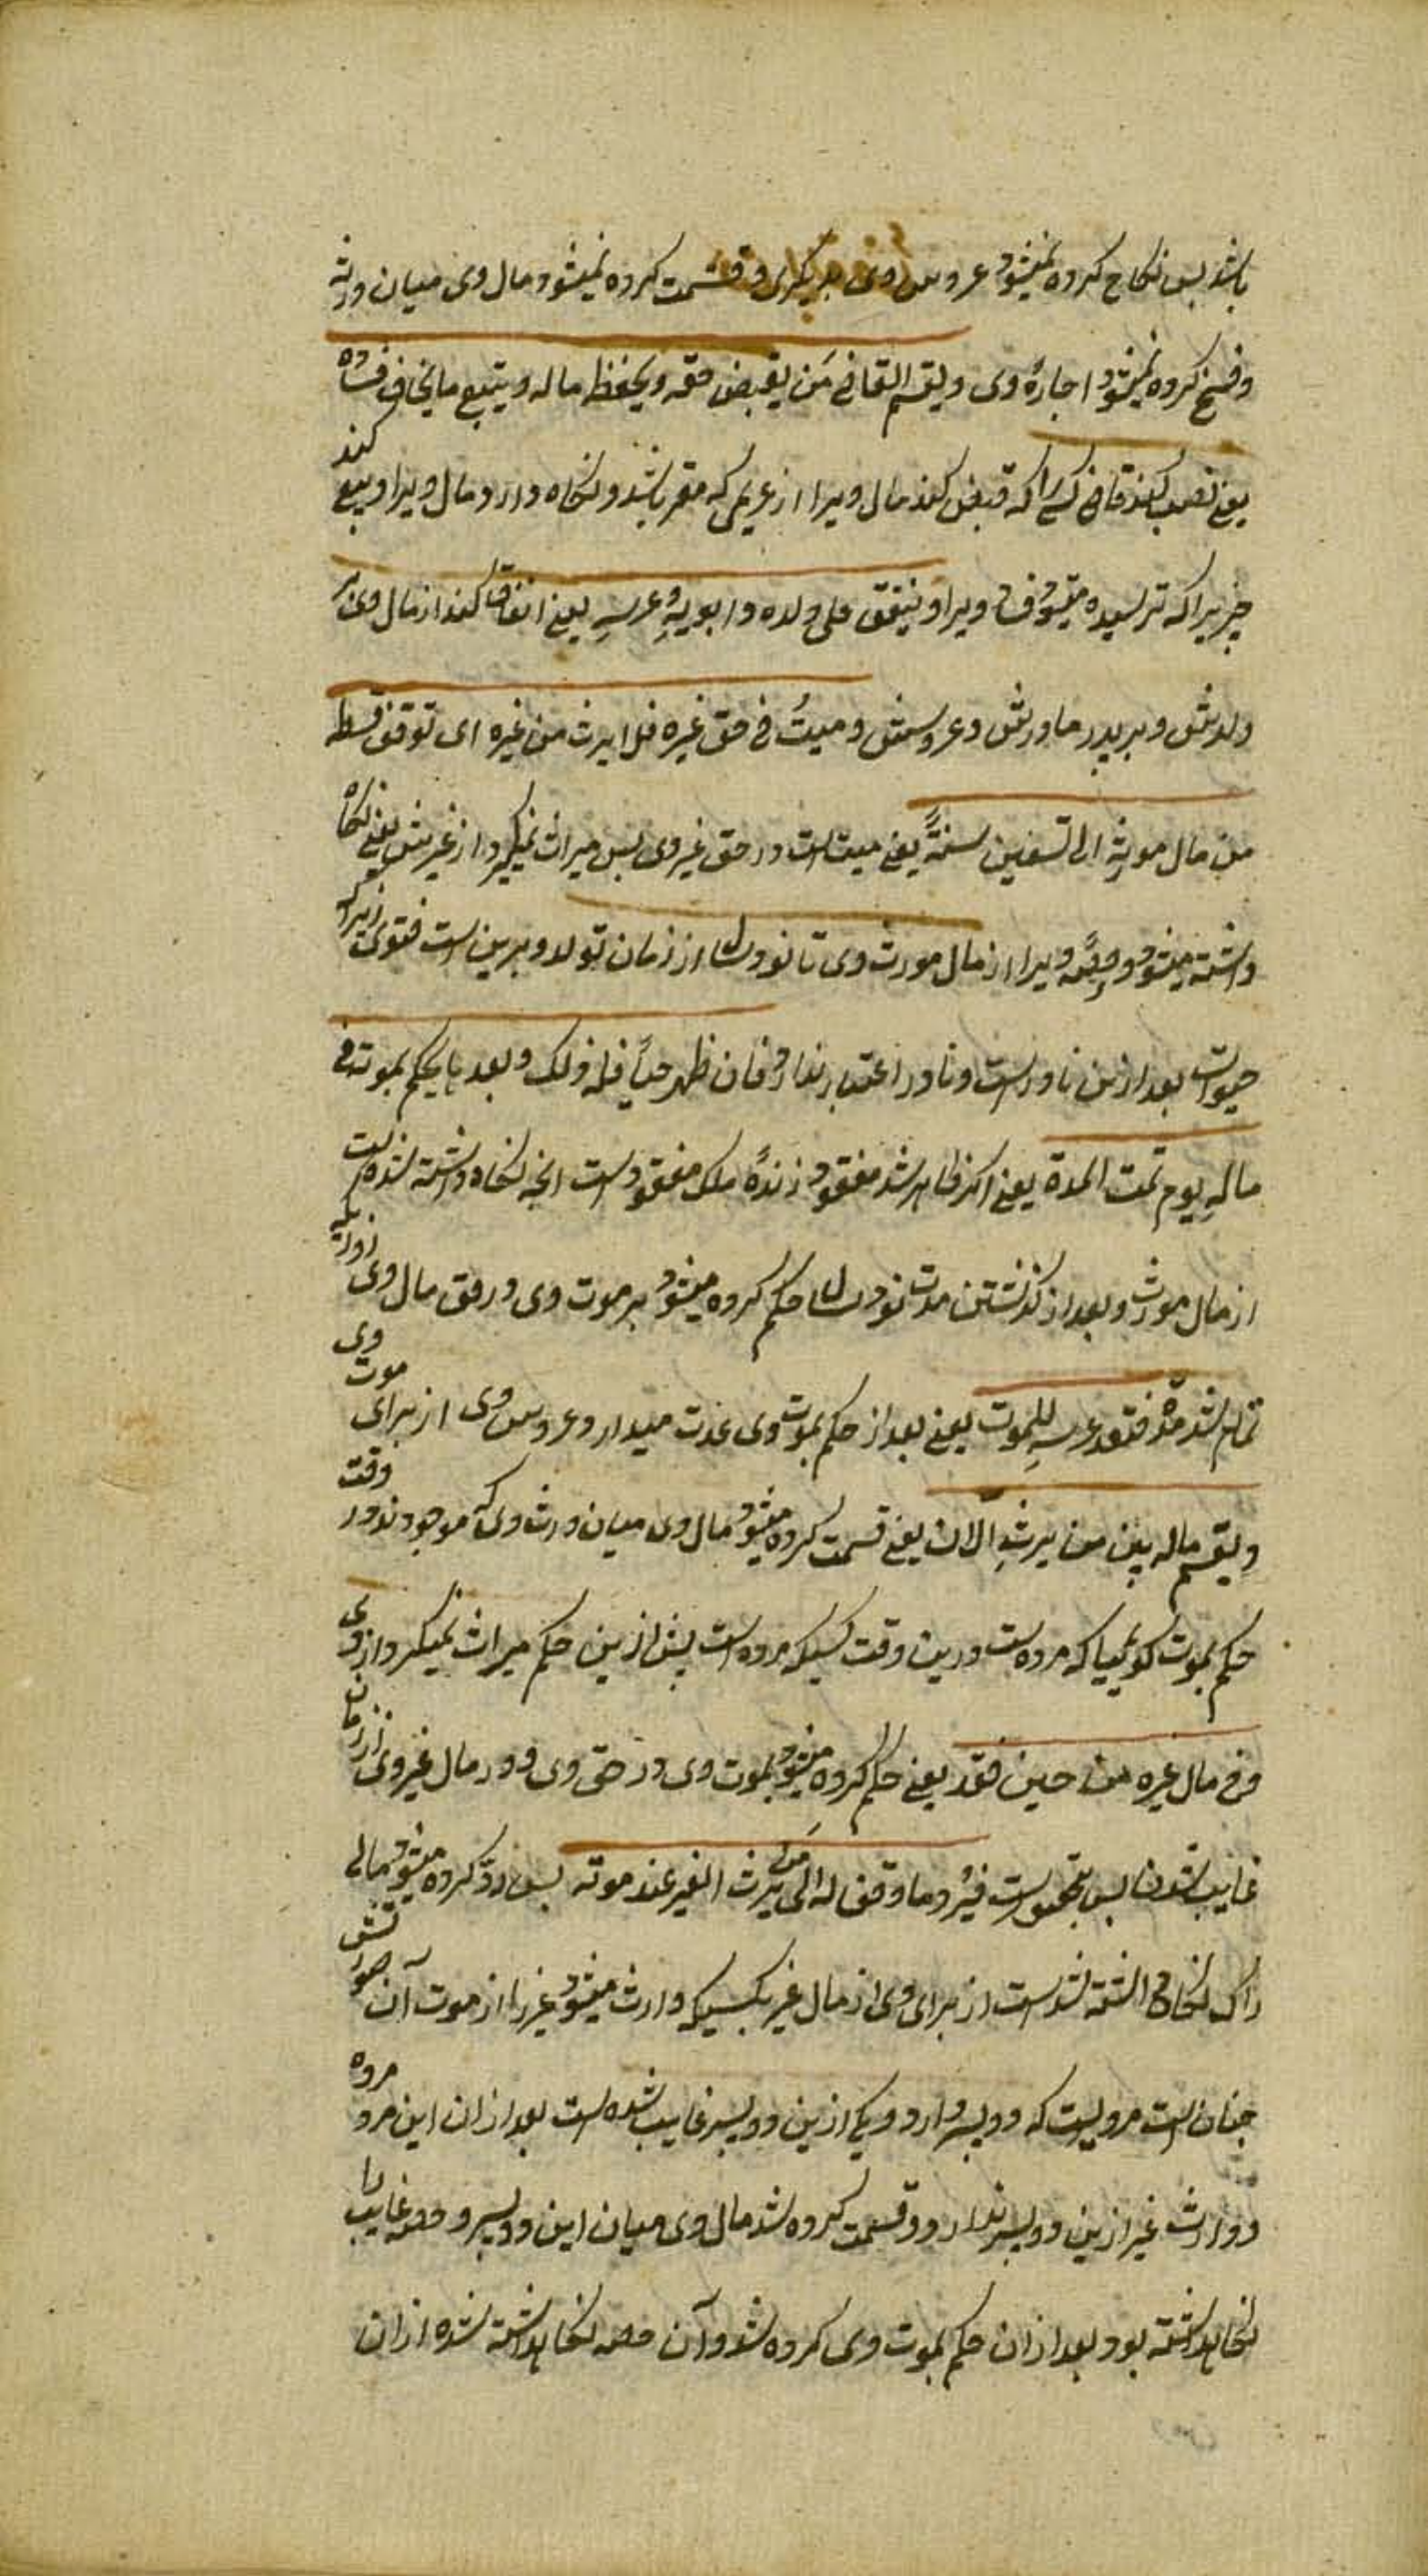 باشد پس نکاح کرده نمیشود عروس وی بدیکری و قسمت کرده نمیشود مال وی میان ورثه
و فسخ کرده نمیشود اجارهٔ وی و یقیم القاضی مَن یقبض حقه و یحفظ ماله و یبیع ما یخاف فساده
یعنی نصب کند قاضی کسی را که قبض کند مال ویرا از غریمی که مقر باشد و نکاه دارد مال ویرا و بیع کند
چیزیرا که ترسیده میشود فساد ویرا و ینفق علی ولده و ابویهِ و عرسهِ یعنی انفاق کند از مال وی بر
ولدش و بر پدر مادرش و عروسش و میتُ فی حق غیره فلا یرث من غیره ای توقف قسطه
من مال مورثهِ الی تسعین سنةً یعنی میت است در حق غیر وی پس میراث نمیکیرد از غیرش یعنی نکاه
داشته میشود حصّهٔ ویرا از مال مورث وی تا نود سال از زمان تولد و برین است فتوی زیراکه
حیوات بعد ازین نادر است و نادر اعتبار ندارد فان ظهر حیاً فله ذلک و بعدها یحکم بموته فی
مالهِ یوم تمت المدة یعنی اکر ظاهر شد مفقود زندهٔ ملک مفقود است انچه نکاه داشته شده است
از مال مورث و بعد از کذشتن مدت نود سال حکم کرده میشود بر موت وی در حق مال وی روزیکه
تمام شد مدّة فتعتد عرسه للموت یعنی بعد از حکم بموت وی عدت میدارد عروس وی از برای موت وی
و یقسم ماله بین من یرثهِ الآن یعنی قسمت کرده میشود مال وی میان ورث وی که موجودند در وقت
حکم بموت کویمیا که مرده است درین وقت کسیکه مرده است پیش ازین حکم میراث نمیکیرد از وی
و فی مال غیره من حین فقد یعنی حکم کرده میشود بموت وی در حق وی و در مال غیر وی از زمان
غایب شدن پس فیُردّ ما وقف له الی مَن یرث الغیر عند موته پس ردّ کرده میشود مالی
را که نکاه داشته شده است از برای وی از مال غیر بکسیکه وارث میشود غیر را از موت آن صورتش
چنان است مردیست که دو پسر دارد و یکی ازین دو پسر غایب شده است بعد ازان این مرد مرده
و وارث غیر ازین دو پسر ندارد و قسمت کرده شد مال وی میان این دو پسر و حصه غایب را
نکاه داشته بود بعد ازان حکم بموت وی کرده شد و آن حصه نکاه داشته شده ازان